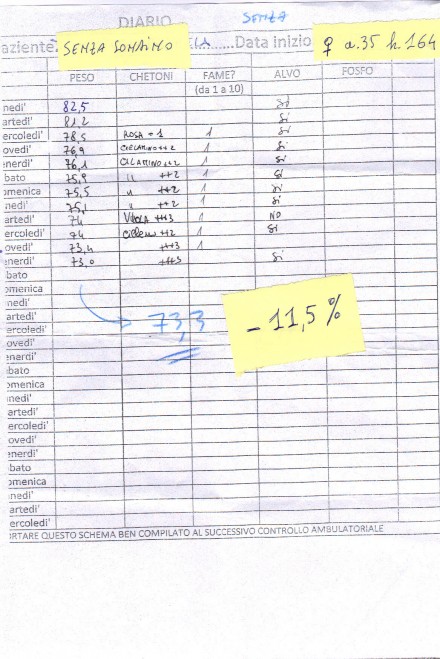 DIARIO SENZA
aziente: SENZA SONDINO ......Data inizio ♀ a.35 h.164
PESO CHETONI FAME? ALVO FOSFO
(da 1 a 10)
nedi' 82,5 Si
artedi' 81,2 Si
ercoledi' 78,5 ROSA = 1 1 Si
ovedi' 76,9 CICLAMINO ++2 1 Si
enerdi' 76,1 CICLAMINO ++2 1 Si
bato 75,9 " ++2 1 Si
omenica 75,5 " ++2 1 Si
nedi' 75,1 " ++2 1 Si
artedi' 74 VIOLA +++3 1 NO
ercoledi' 74 ++2 1 Si
ovedi' 73,4 ++3 1
enerdi' 73,0 ++3 Si
bato
omenica
nedi'
artedi' 73,3 - 11,5 %
ercoledi'
ovedi'
enardi'
bato
omenica
nedi'
artedi'
ercoledi'
ovedi'
enerdi'
bato
omenica
nedi'
artedi'
ercoledi'
RTARE QUESTO SCHEMA BEN COMPILATO AL SUCCESSIVO CONTROLLO AMBULATORIALE